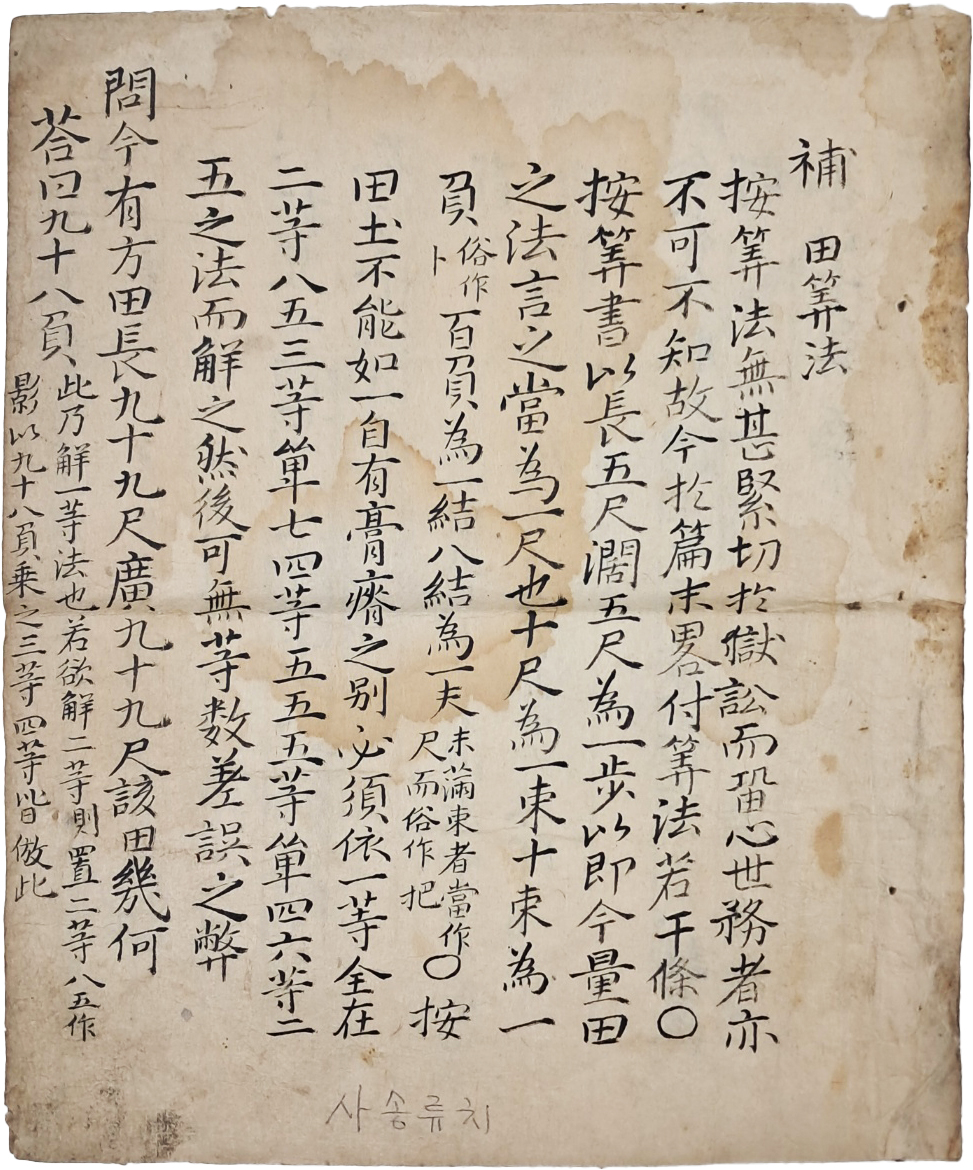 補 田筭法
按筭法無甚緊切於獄訟而留心世務者亦
不可不知故今於篇末畧付筭法若干條〇
按筭書以長五尺濶五尺為一步以即今量田
之法言之當為一尺也十尺為一束十束為一
負俗作卜百負為一結八結為一夫未滿束者當作尺而俗作把〇按
田土不能如一自有膏瘠之别必須依一等全在
二等八五三等單七四等五五五等單四六等二
五之法而解之然後可無等数差誤之弊
問今有方田長九十九尺廣九十九尺該田幾何
荅曰九十八負此乃解一等法也若欲解二等則置二等八五作
影以九十八負乘之三等四等皆倣此
사송류치